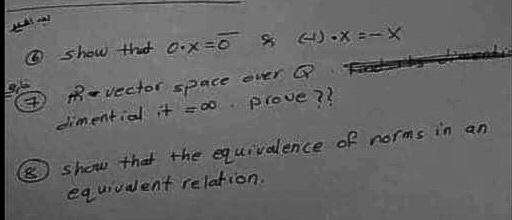 ⑥ show that 0·x=0̅ & (-1)·x=-x
⑦ R=vector space over Q.
dimential it =∞. prove??
⑧ show that the equivalence of norms in an
equivalent relation.